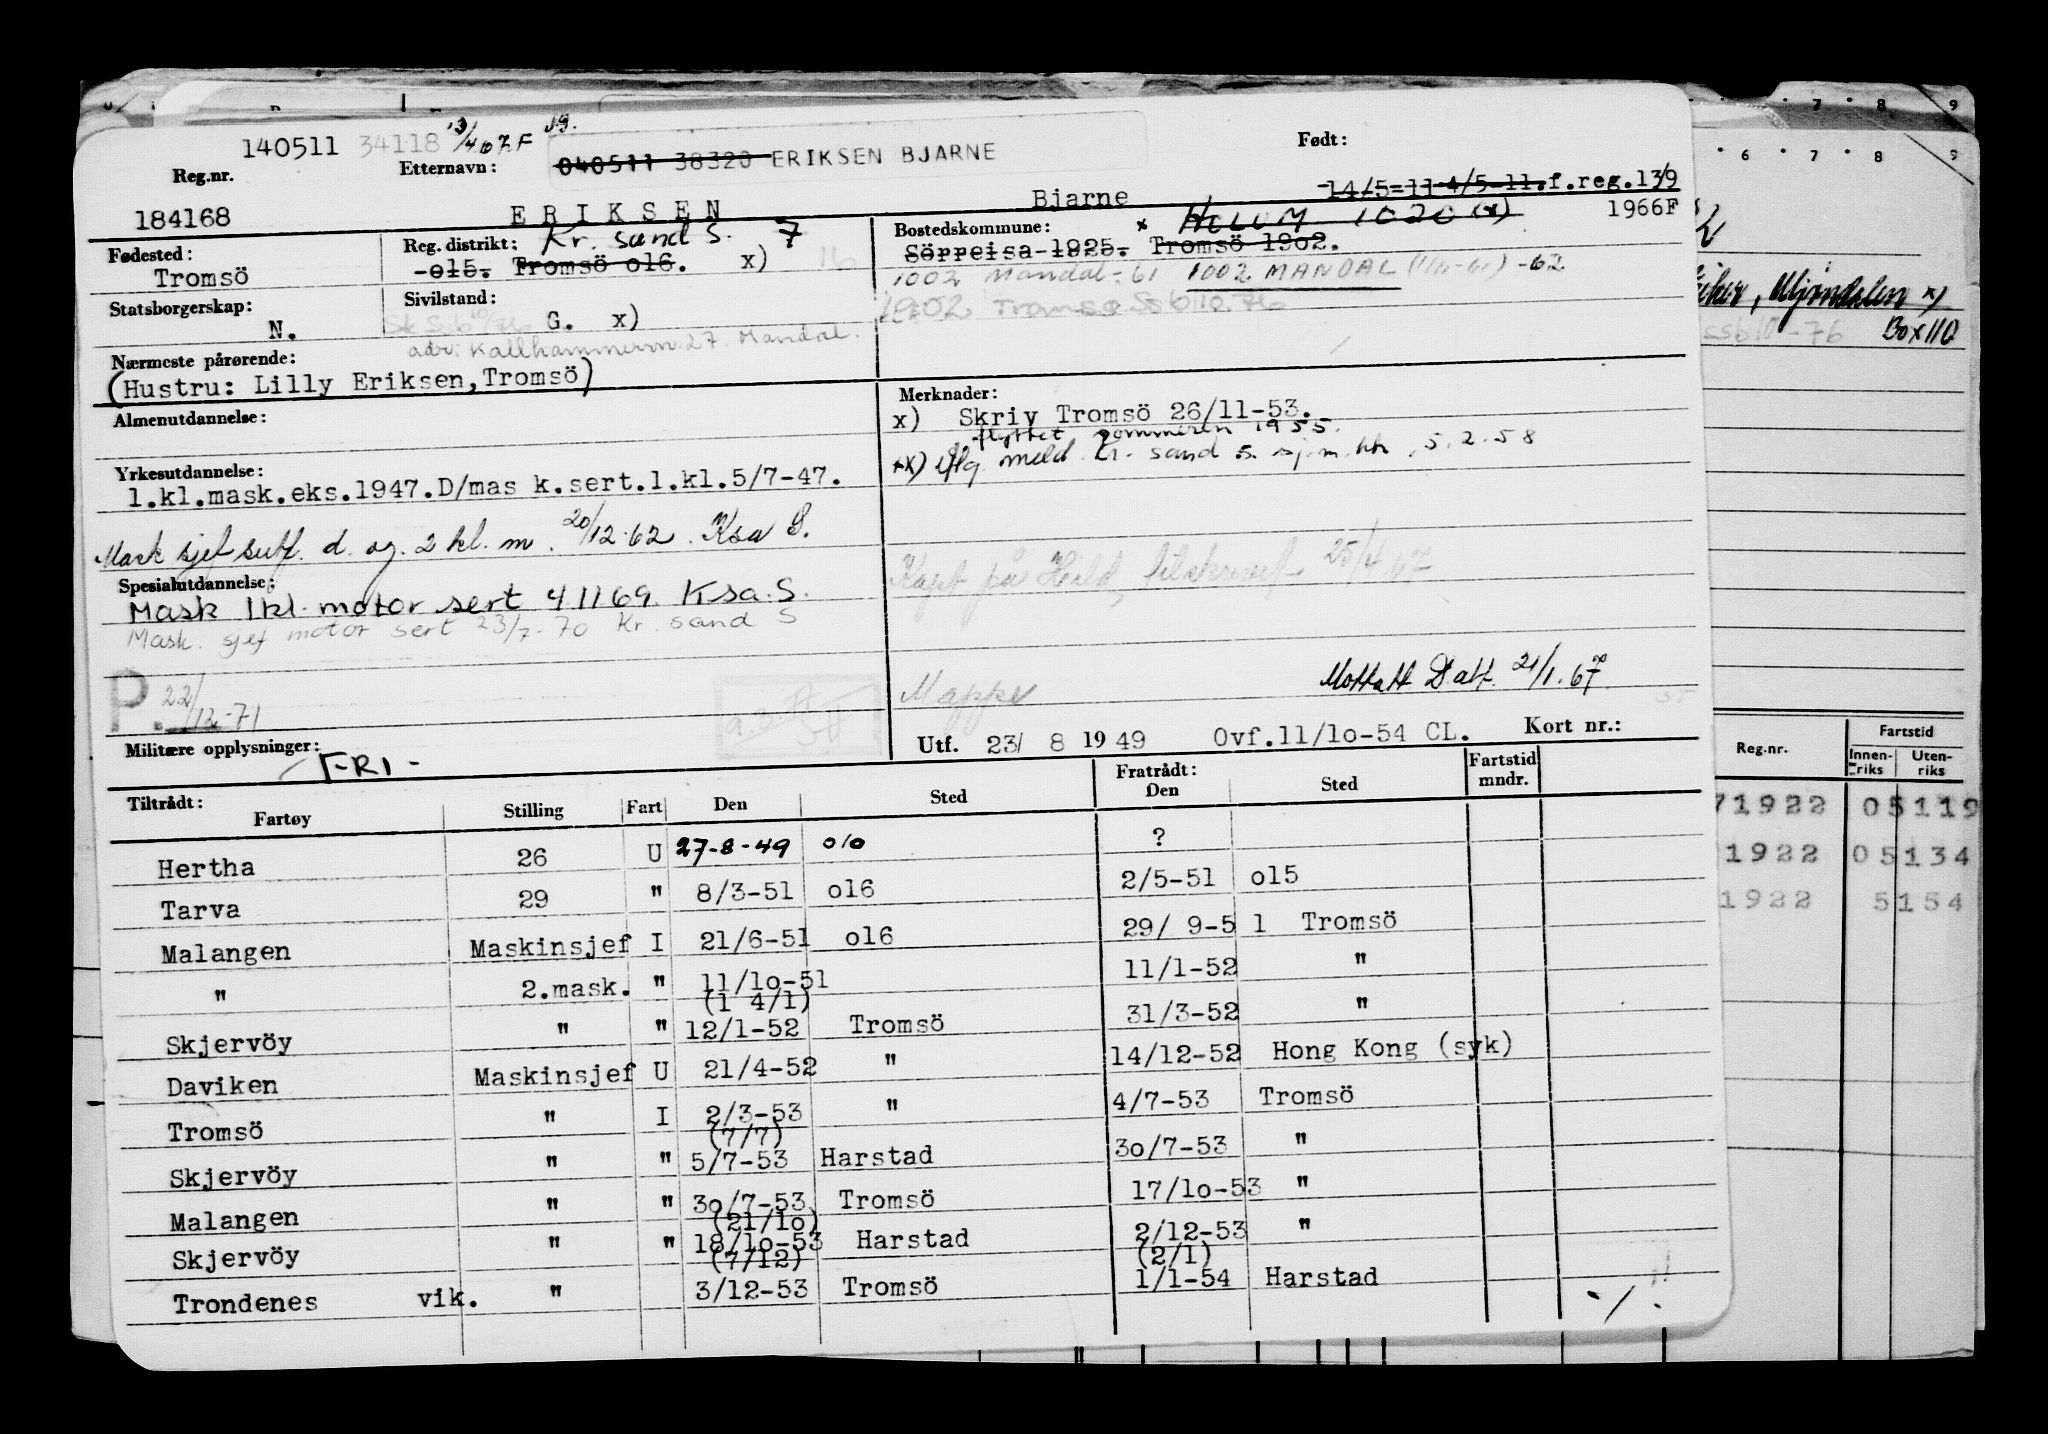 140511 34118 13/4 67 F
Reg.nr. Etternavn: 040511 38320 ERIKSEN BJARNE Født:
184168 ERIKSEN Bjarne 14/5-11 4/5-11. f.reg.13/9 1966F
Fødested: Reg. distrikt: Kr. sand S. 7 Bostedskommune: x HOLUM 1020 (x)
Tromsö -o15. Tromsö o16. x) 16 Sörreisa 1925. Tromsö 19o2.
1002 Mandal-61 1002 MANDAL -62
Statsborgerskap: Sivilstand: 1902 Tromsø Ssb 10.76
N. G. x)
adr: Kallhammervn 27. Mandal.
Nærmeste pårørende:
(Hustru: Lilly Eriksen,Tromsö)
Merknader:
Almenutdannelse: x) Skriv Tromsö 26/11-53.
flyttet sommeren 1955.
xx) iflg. meld. Kr. sand S. sj.m.kt. 5.2.58
Yrkesutdannelse:
1.kl.mask.eks.1947.D/mas k.sert.1.kl.5/7-47.
Mask sjef sutf. d. og. 2 kl. m. 20/12-62. Ksa S.
Kapt på Hild, tilskrevet 25/4 67
Spesialutdannelse:
Mask 1 kl. motor sert 4 11 69. Ksa. S.
Mask. sjef motor sert 23/7-70 Kr. sand S
Mappe Mottatt D. att. 21/1.67
P. 22/12-71
Militære opplysninger: Utf. 23/ 8 1949 Ovf.11/1o-54 CL. Kort nr.:
FRI -
Tiltrådt: Fratrådt: Fartstid
Fartøy Stilling Fart Den Sted Den Sted mndr.
Hertha 26 U 27-8-49 010 ?
Tarva 29 " 8/3-51 o16 2/5-51 o15
Malangen Maskinsjef I 21/6-51 o16 29/ 9-5 1 Tromsö
" 2.mask. " 11/1o-51 11/1-52 "
(1 4/1)
Skjervöy " " 12/1-52 Tromsö 31/3-52 "
Daviken Maskinsjef U 21/4-52 " 14/12-52 Hong Kong (syk)
Tromsö " I 2/3-53 " 4/7-53 Tromsö
(7/7)
Skjervöy " " 5/7-53 Harstad 3o/7-53 "
Malangen " " 3o/7-53 Tromsö 17/1o-53 "
(21/1o)
Skjervöy " " 18/1o-53 Harstad 2/12-53 "
(7/12) (2/1)
Trondenes vik. " 3/12-53 Tromsö 1/1-54 Harstad
7 8 9
6 7 8 9
Mjøndalen x)
Ssb 10-76 Box 110
Fartstid
Reg.nr. Innen-riks Uten-riks
71922 05119
1922 05134
1922 5154